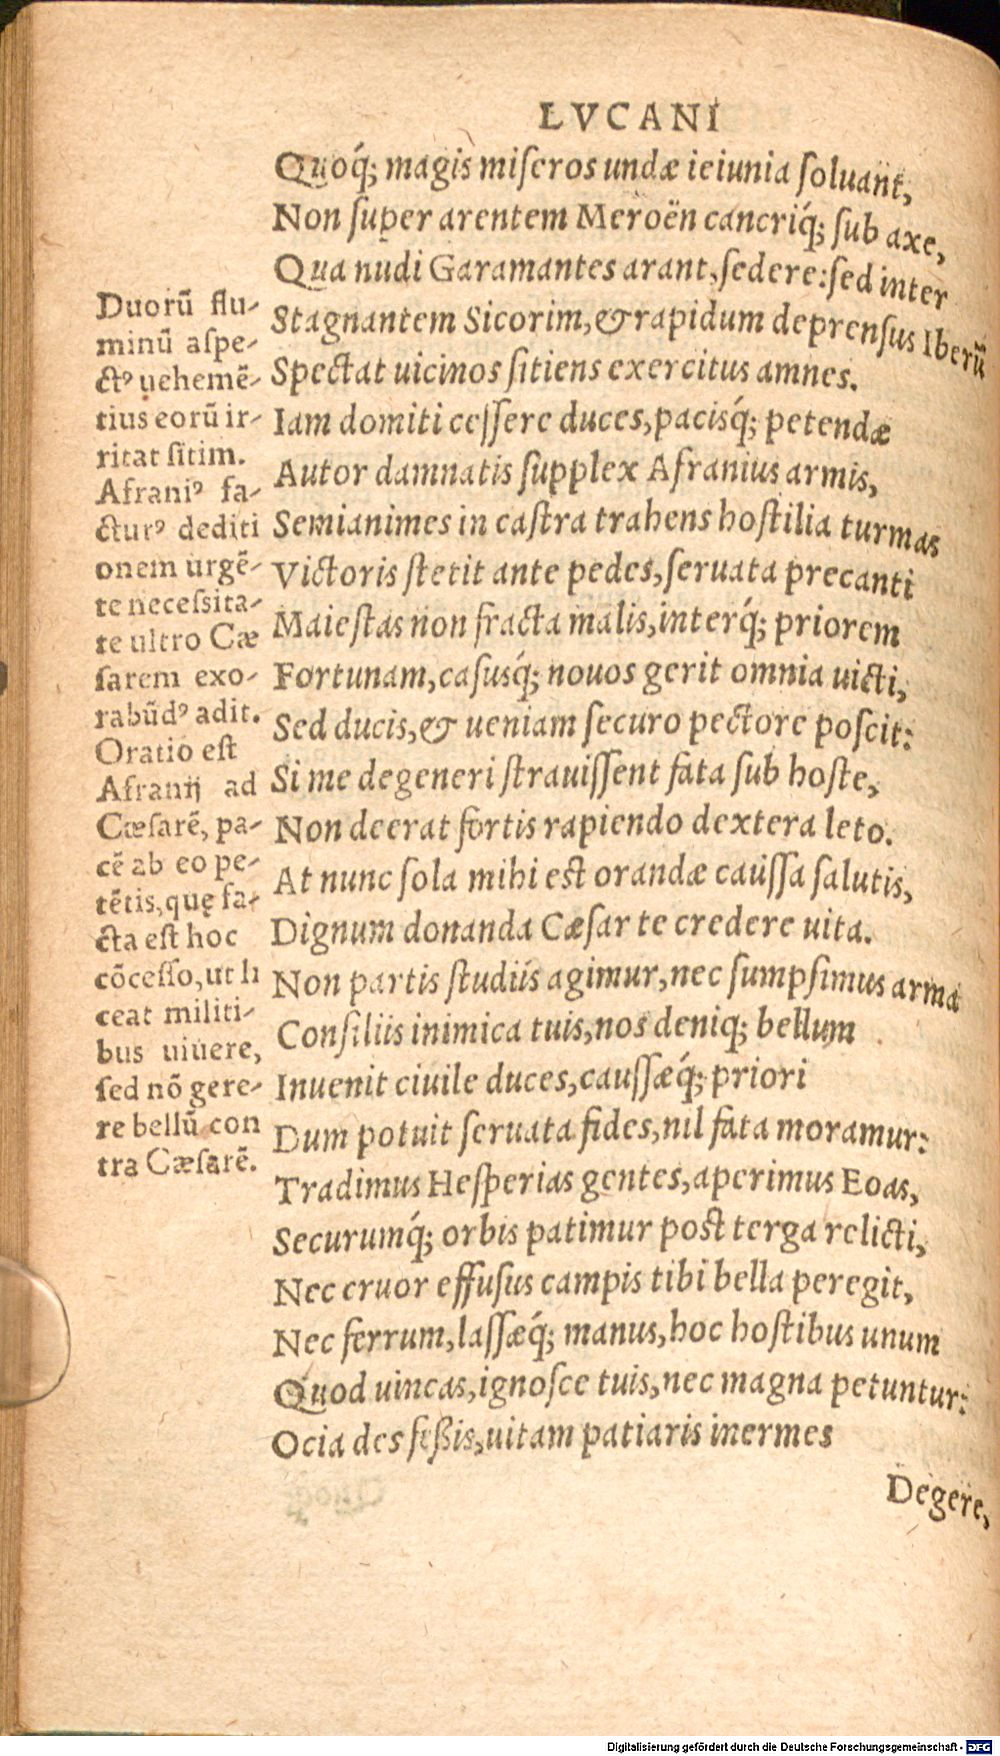 LVCANI
Quoq́; magis miſeros undæ ieiunia ſoluant,
Non ſuper arentem Meroën cancriq́; ſub axe,
Qua nudi Garamantes arant, ſedere: ſed inter
Stagnantem Sicorim, & rapidum deprenſus Iberũ
Spectat uicinos ſitiens exercitus amnes.
Iam domiti ceſſere duces, pacisq́; petendæ
Autor damnatis ſupplex Afranius armis,
Semianimes in caſtra trahens hoſtilia turmas
Victoris ſtetit ante pedes, ſeruata precanti
Maieſtas non fracta malis, interq́; priorem
Fortunam, caſusq́; nouos gerit omnia uicti,
Sed ducis, & ueniam ſecuro pectore poſcit:
Si me degeneri ſtrauiſſent fata ſub hoſte,
Non deerat fortis rapiendo dextera leto.
At nunc ſola mihi eſt orandæ cauſſa ſalutis,
Dignum donanda Cæſar te credere uita.
Non partis ſtudiis agimur, nec ſumpſimus arma
Conſiliis inimica tuis, nos deniq; bellum
Inuenit ciuile duces, cauſſæq́; priori
Dum potuit ſeruata fides, nil fata moramur:
Tradimus Heſperias gentes, aperimus Eoas,
Securumq́; orbis patimur poſt terga relicti,
Nec cruor effuſus campis tibi bella peregit,
Nec ferrum, laſſæq́; manus, hoc hoſtibus unum
Quod uincas, ignoſce tuis, nec magna petuntur:
Ocia des feßis, uitam patiaris inermes
Degere,
Duorũ flu-
minũ aſpe-
ctꝰ uehemẽ-
tius eorũ ir-
ritat ſitim.
Afraniꝰ fa-
cturꝰ dediti
onem urgẽ-
te neceſsita-
te ultro Cæ
ſarem exo-
rabũdꝰ adit.
Oratio eſt
Afranij ad
Cæſarẽ, pa-
cẽ ab eo pe-
tẽtis, quę fa-
cta eſt hoc
cõceſſo, ut li
ceat militi-
bus uiuere,
ſed nõ gere-
re bellũ con
tra Cæſarẽ.
Digitalisierung gefördert durch die Deutsche Forschungsgemeinschaft - DFG